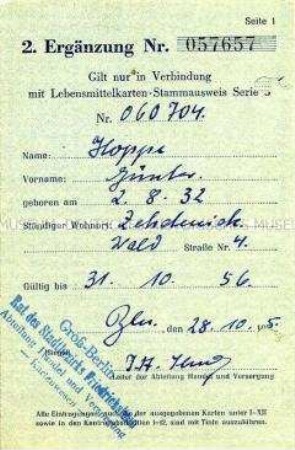 Seite 1
2. Ergänzung Nr. 057657
Gilt nur in Verbindung
mit Lebensmittelkarten-Stammausweis Serie
Nr. 060704.
Name: Hoppe
Vorname: Günter
geboren am 2. 8. 32
Ständiger Wohnort Zehdenick
Wald Straße Nr. 4.
Gültig bis 31. 10. 56.
Bln. den 28. 10. 195
Groß-Berlin
Rat des Stadtbezirks Friedrichshain
Abteilung Handel und Versorgung
— Kartenwesen —
I.A.
Leiter der Abteilung Handel und Versorgung
Alle Eintragungen, auch der ausgegebenen Karten unter I-XII
sowie in den Kontrollabschnitten 1-12, sind mit Tinte auszuführen.